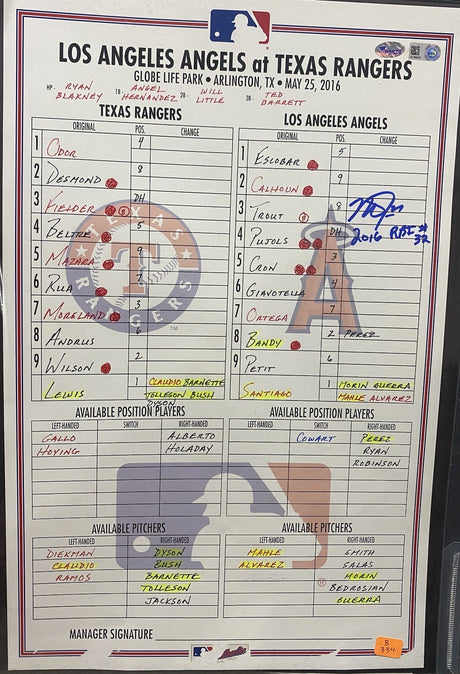 LOS ANGELES ANGELS at TEXAS RANGERS
GLOBE LIFE PARK • ARLINGTON, TX • MAY 25, 2016
HP- RYAN BLAKNEY 1B- ANGEL HERNANDEZ 2B- WILL LITTLE 3B- TED BARRETT
TEXAS RANGERS
ORIGINAL POS. CHANGE
1 ODOR 4
2 DESMOND 8
3 FIELDER DH
4 BELTRE 5
5 MAZARA 9
6 RUA 7
7 MORELAND 3
8 ANDRUS 6
9 WILSON 2
LEWIS 1 CLAUDIO BARNETTE
TOLLESON BUSH
DYSON
LOS ANGELES ANGELS
ORIGINAL POS. CHANGE
1 ESCOBAR 5
2 CALHOUN 9
3 TROUT 8
4 PUJOLS DH
2016 RBI # 32
5 CRON 3
6 GIAVOTELLA 4
7 ORTEGA 7
8 BANDY 2 PEREZ
9 PETIT 6
SANTIAGO 1 MORIN GUERRA
MAHLE ALVAREZ
TEXAS RANGERS
TM
AVAILABLE POSITION PLAYERS
LEFT-HANDED SWITCH RIGHT-HANDED
GALLO ALBERTO
HOYING HOLADAY
AVAILABLE POSITION PLAYERS
LEFT-HANDED SWITCH RIGHT-HANDED
COWART PEREZ
RYAN
ROBINSON
AVAILABLE PITCHERS
LEFT-HANDED RIGHT-HANDED
DIEKMAN DYSON
CLAUDIO BUSH
RAMOS BARNETTE
TOLLESON
JACKSON
AVAILABLE PITCHERS
LEFT-HANDED RIGHT-HANDED
MAHLE SMITH
ALVAREZ SALAS
MORIN
BEDROSIAN
GUERRA
MANAGER SIGNATURE
B
334